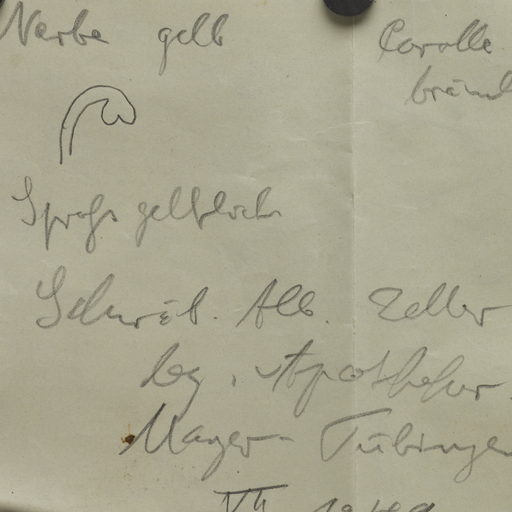 Narbe gelb
Corolle
bräunl
Spross gelblich
Schwäb. Alb. Zeller
leg. Apotheker
Mayer Tübingen
VII